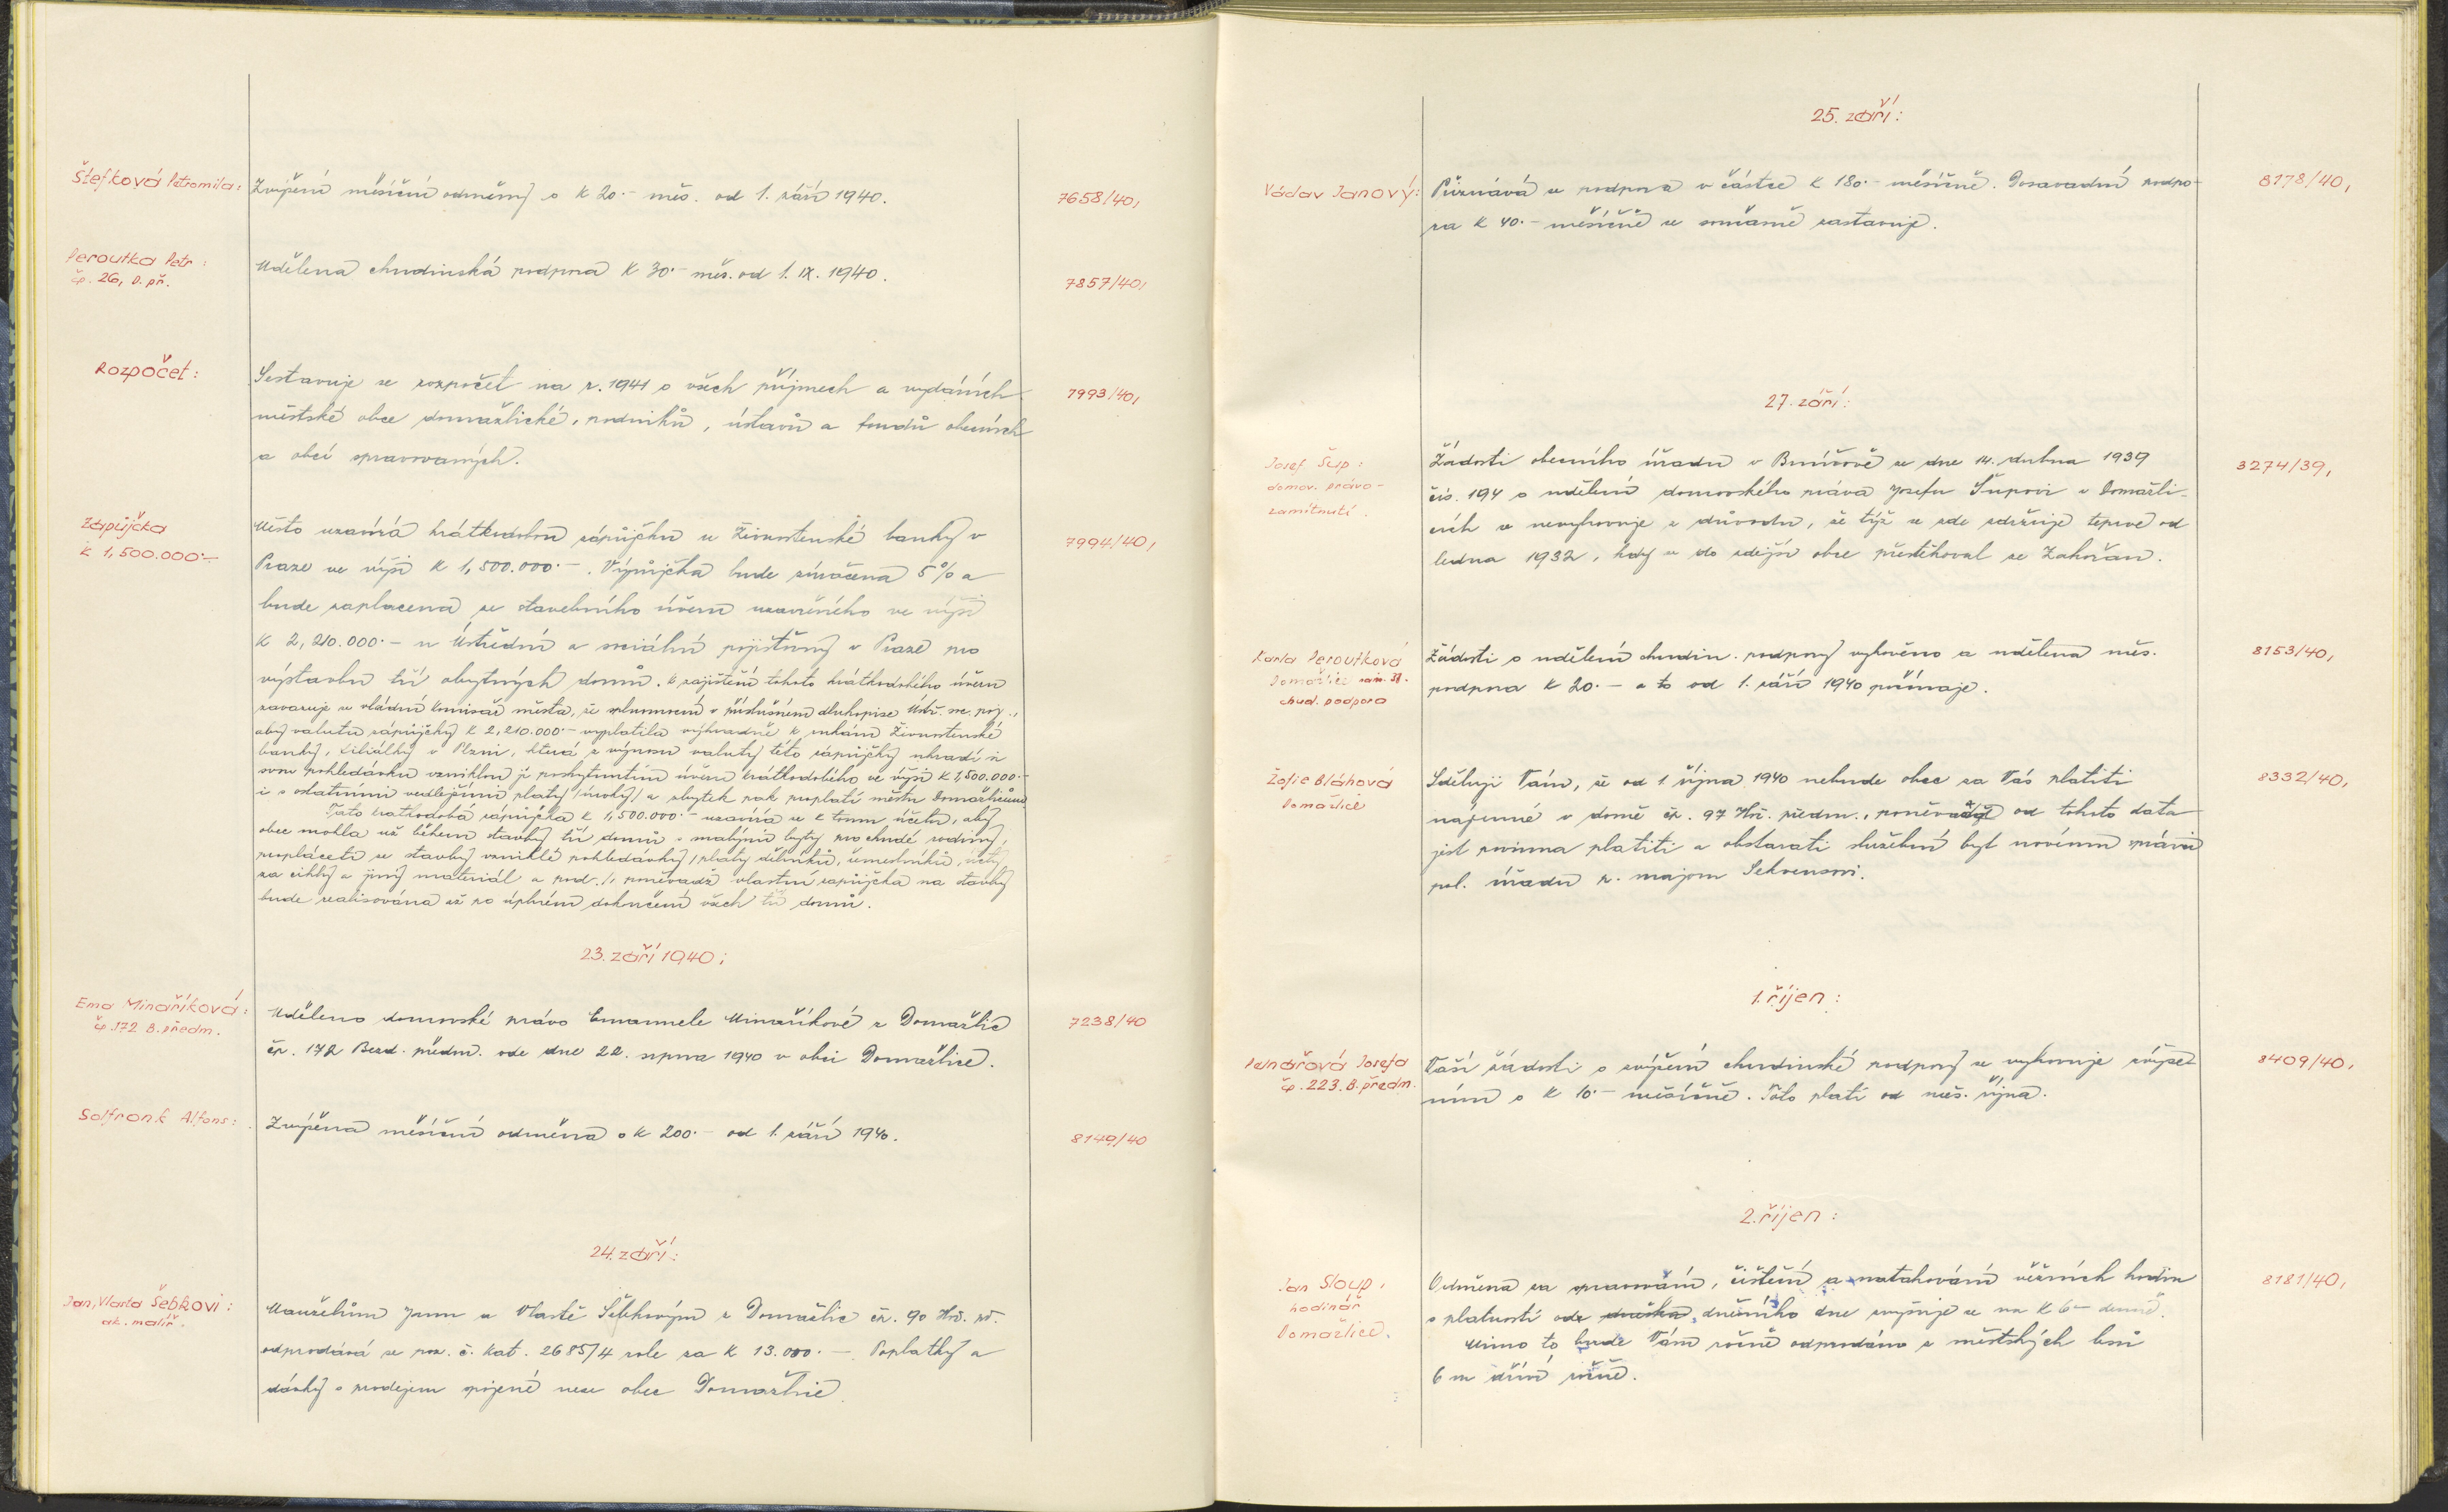 Štefková Petromila:
Zvýšení měsíční odměny o K 20.- měs. od 1. září 1940.
7658/40,
Peroutka Petr:
čp. 26, D. př.
Udělena chudinská podpora K 30.- měs. od 1. IX. 1940.
7857/40,
Rozpočet:
Sestavuje se rozpočet na r. 1941 o všech příjmech a vydáních
městské obce domažlické, podniků, ústavů a fondů obecních
a obcí spravovaných.
7993/40,
Zápůjčka
K 1,500.000.-
Město uzavírá krátkodobou zápůjčku u Živnostenské banky v
Praze ve výši K 1,500.000.-. Výpůjčka bude zúročena 5% a
bude zaplacena ze stavebního úvěru uzavřeného ve výši
K 2,210.000.- u Ústřední sociální pojišťovny v Praze pro
výstavbu tří obytných domů. K zajištění tohoto krátkodobého úvěru
zavazuje se vládní komisař města, že splnomocní v příslušném dluhopise Ústř. soc. poj.,
aby valutu zápůjčky K 2,210.000.- vyplatila výhradně k rukám Živnostenské
banky, filiálky v Plzni, která z výnosu valuty této zápůjčky uhradí si
svou pohledávku vzniklou jí poskytnutím úvěru krátkodobého ve výši K 1,500.000.-
i s ostatními vedlejšími platy /úroky/ a zbytek pak proplatí městu Domažlicům.
Tato krátkodobá zápůjčka K 1,500.000.- uzavírá se k tomu účelu, aby
obec mohla už během stavby tří domů s malými byty pro chudé rodiny,
propláceti ze stavby vzniklé pohledávky /platy dělníků, řemeslníků, účty
za cihly a jiný materiál a pod./, poněvadž vlastní zápůjčka na stavby
bude realisována až po úplném dokončení všech tří domů.
7994/40,
23. září 1940:
Ema Minaříková:
čp. 172 B. předm.
Uděleno domovské právo Emanuele Minaříkové z Domažlic
čp. 172 Bezd. předm. ode dne 22. srpna 1940 v obci Domažlice.
7238/40
Solfronk Alfons:
Zvýšena měsíční odměna o K 200.- od 1. září 1940.
8149/40
24. září:
Jan, Vlasta Šebkovi:
ak. malíř.
Manželům Janu a Vlastě Šebkovým z Domažlic čp. 90 Hoř. př.
odprodává se poz. č. kat. 2685/4 role za K 13.000.-. Poplatky a
dávky s prodejem spojené nese obec Domažlice.
25. září:
Václav Janový:
Přiznává se podpora v částce K 180.- měsíčně. Dosavadní podpo-
ra K 40.- měsíčně se současně zastavuje.
8178/40,
27. září:
Josef Šup:
domov. právo -
zamítnutí.
Žádosti obecního úřadu v Brnířově ze dne 14. dubna 1939
čís. 194 o udělení domovského práva Josefu Šupovi v Domažli-
cích se nevyhovuje z důvodu, že týž se zde zdržuje teprve od
ledna 1932, kdy se do zdejší obce přestěhoval ze Zahořan.
3274/39,
Karla Peroutková
Domažlice
chud. podpora
Žádosti o udělení chudin. podpory vyhověno a udělena měs.
podpora K 20.- a to od 1. září 1940 počínaje.
8153/40,
Žofie Bláhová
Domažlice
Sděluji Vám, že od 1. října 1940 nebude obec za Vás platiti
nájemné v domě čp. 97 Hoř. předm., poněvadž od tohoto data
jest povinna platiti a obstarati služební byt novému správci
pol. úřadu p. majoru
8332/40,
1. říjen:
Pelnářová Josefa
čp. 223. B. předm.
Vaší žádosti o zvýšení chudinské podpory se vyhovuje zvýše-
ním o K 10.- měsíčně. Toto platí od měs. října.
8409/40,
2. říjen:
Jan Sloup,
hodinář
Domažlice.
Odměna za spravování, čištění a natahování věžních hodin
s platností ode dneška, dnešního dne zvyšuje se na K 6- denně.
Mimo to bude Vám ročně odprodáno z městských lesů
6 m dříví ročně.
8181/40,